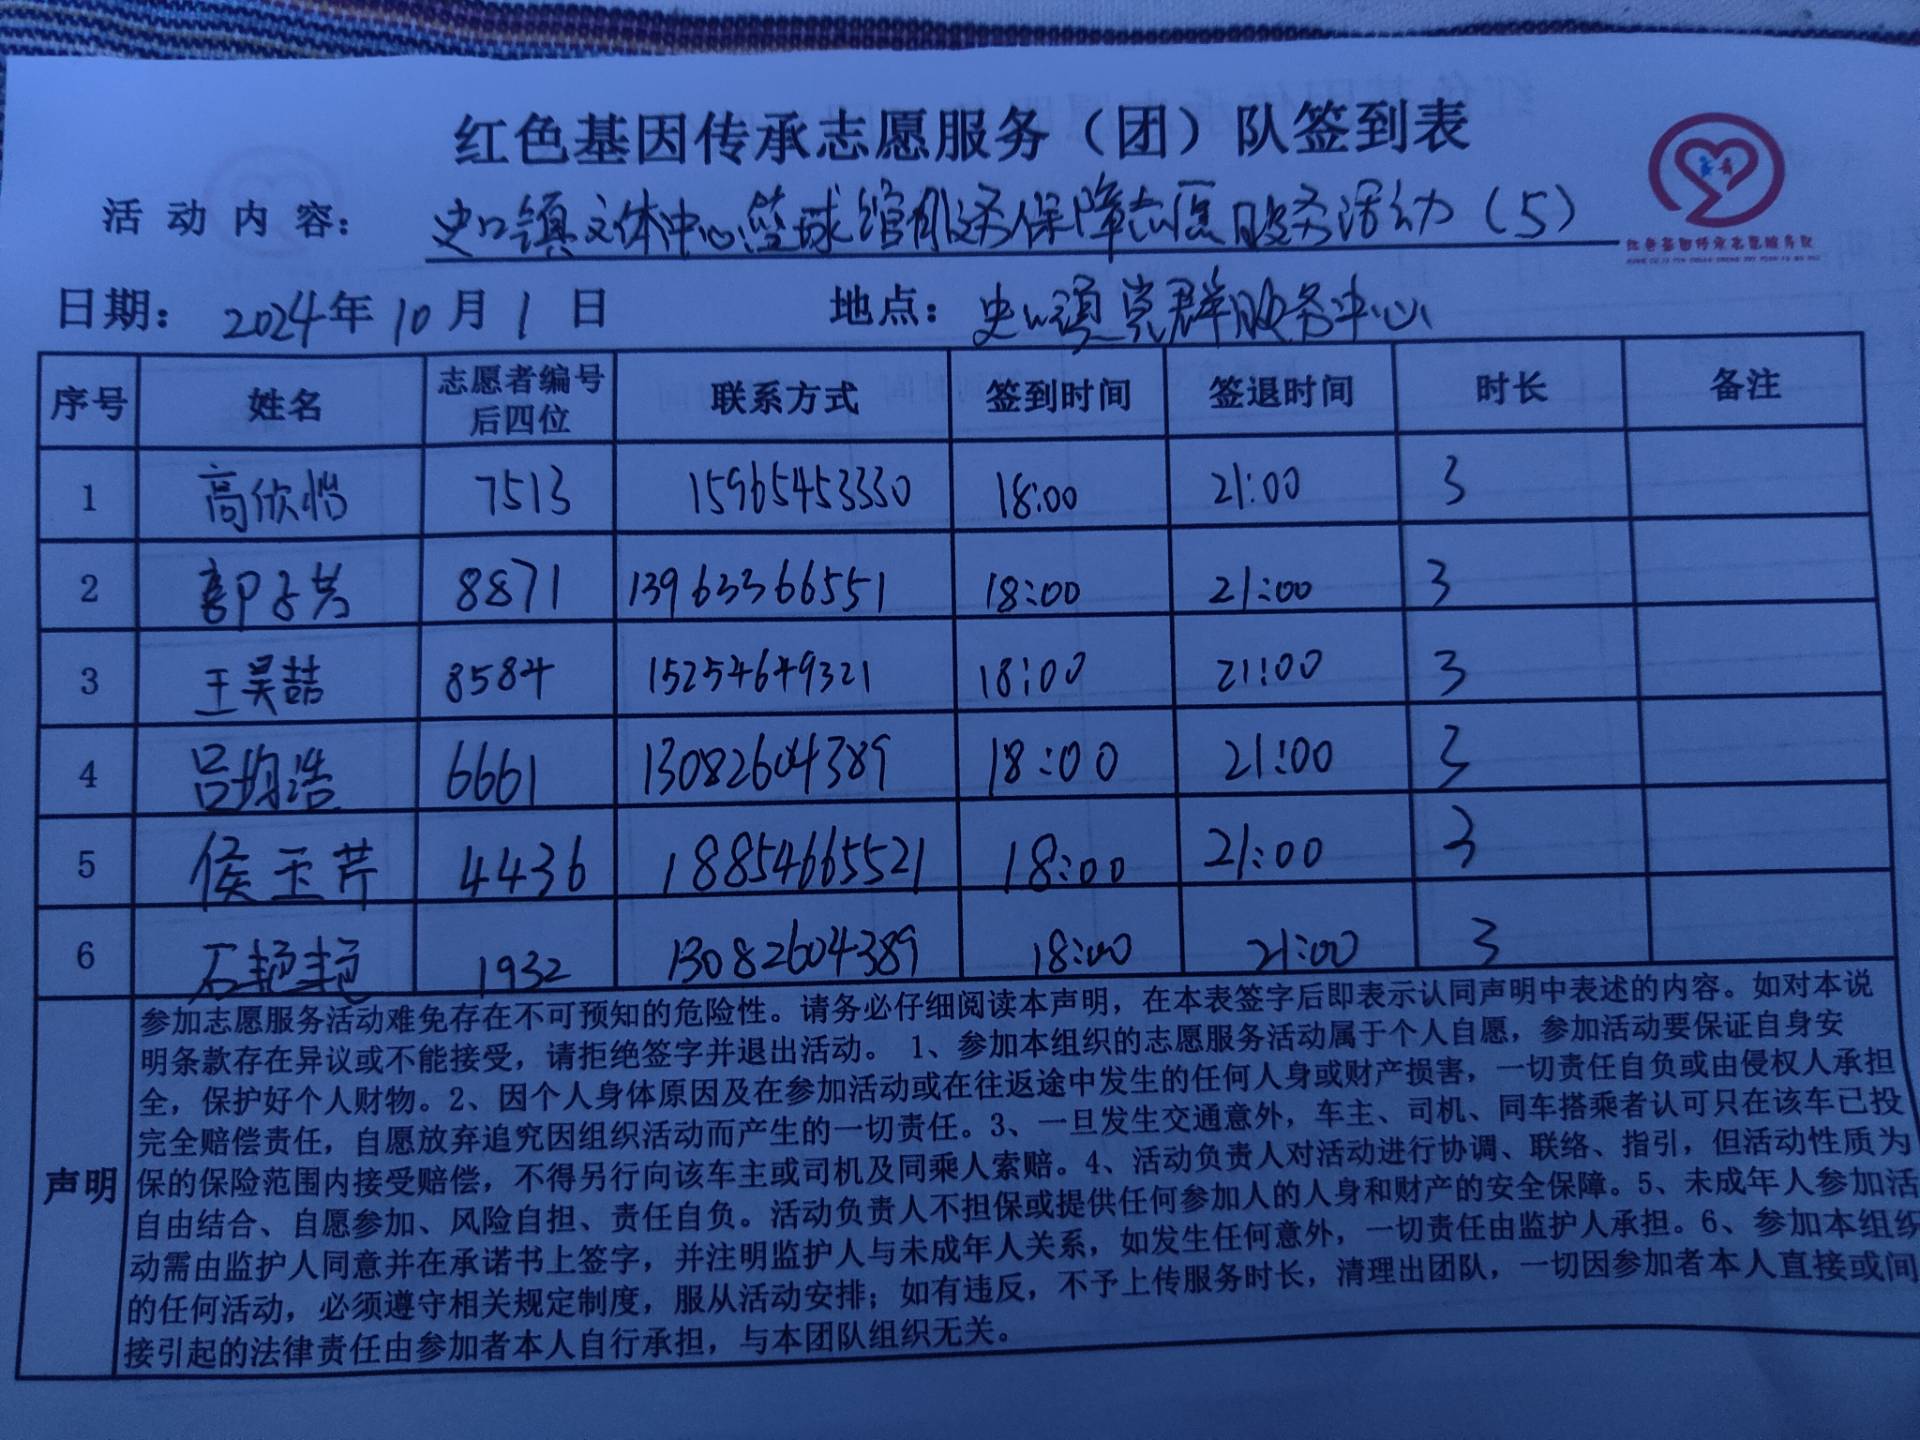 红色基因传承志愿服务（团）队签到表
活动内容： 史口镇文体中心篮球馆服务保障志愿服务活动（5）
红色基因传承志愿服务队
日期： 2024年10月1日 地点： 史口镇党群服务中心
序号 姓名 志愿者编号后四位 联系方式 签到时间 签退时间 时长 备注
1 高欣怡 7513 15965453330 18:00 21:00 3
2 郭子芸 8871 13963366551 18:00 21:00 3
3 王昊喆 8584 15254649321 18:00 21:00 3
4 吕均浩 6661 13082604389 18:00 21:00 3
5 侯玉芹 4436 18854665521 18:00 21:00 3
6 石艳艳 1932 13082604389 18:00 21:00 3
声明
参加志愿服务活动难免存在不可预知的危险性。请务必仔细阅读本声明，在本表签字后即表示认同声明中表述的内容。如对本说
明条款存在异议或不能接受，请拒绝签字并退出活动。 1、参加本组织的志愿服务活动属于个人自愿，参加活动要保证自身安
全，保护好个人财物。2、因个人身体原因及在参加活动或在往返途中发生的任何人身或财产损害，一切责任自负或由侵权人承担
完全赔偿责任，自愿放弃追究因组织活动而产生的一切责任。3、一旦发生交通意外，车主、司机、同车搭乘者认可只在该车已投
保的保险范围内接受赔偿，不得另行向该车主或司机及同乘人索赔。4、活动负责人对活动进行协调、联络、指引，但活动性质为
自由结合、自愿参加、风险自担、责任自负。活动负责人不担保或提供任何参加人的人身和财产的安全保障。5、未成年人参加活
动需由监护人同意并在承诺书上签字，并注明监护人与未成年人关系，如发生任何意外，一切责任由监护人承担。6、参加本组织
的任何活动，必须遵守相关规定制度，服从活动安排；如有违反，不予上传服务时长，清理出团队，一切因参加者本人直接或间
接引起的法律责任由参加者本人自行承担，与本团队组织无关。